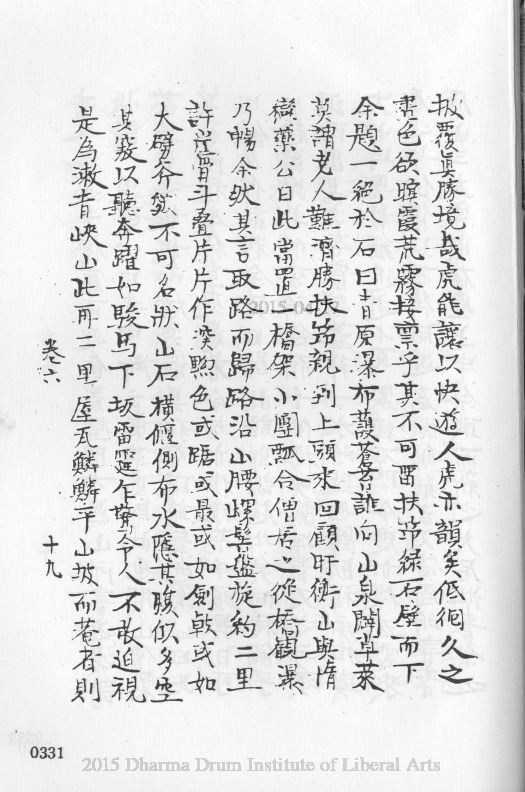 披覆真勝境哉虎能讓以快遊人虎亦韻矣低徊久之
書色欲暝霞荒霧接凛乎其不可留扶筇緣石壁而下
余題一絕於石曰青原瀑布護蒼雲誰向山泉闢草萊
莫謂老人難濟勝扶筇親到上頭來回顧盱衡山與情
藥公曰此當置一橋架小團瓢令僧居之從橋觀瀑
乃暢余然其言取路而歸路沿山腰螺髻盤旋約二里
許望雷斗疊片片作深黝色或踞或最或如劍戟或如
大劈斧然不可名狀山石橫偃側布水隱其腹似多空
其竅以聽奔躍如駿馬下坂雷霆乍驚令人不敢迫視
是為漱青峽山此再二里屋瓦鱗鱗平山坡而菴者則
卷六
十九
0331
2015 Dharma Drum Institute of Liberal Arts